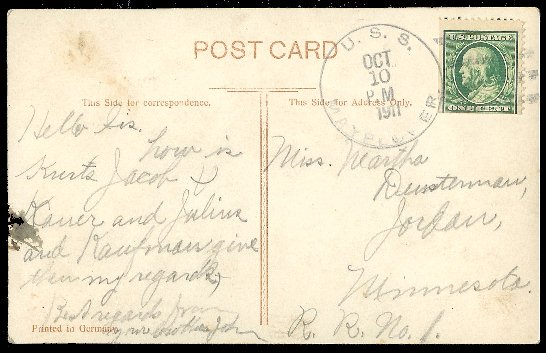 POST CARD
U. S. S.
OCT
10
P M
1911
MAYFLOWER
U.S. POSTAGE
ONE CENT
This Side for correspondence.
This Side for Address Only.
Hello Sis.
how is
Kurts Jacob
and Julius
and Kaufman give
them my regards
Best regards from
your brother John
Printed in Germany
Miss. Martha
Dunsterman,
Jordan,
Minnesota.
R. R. No. 1.